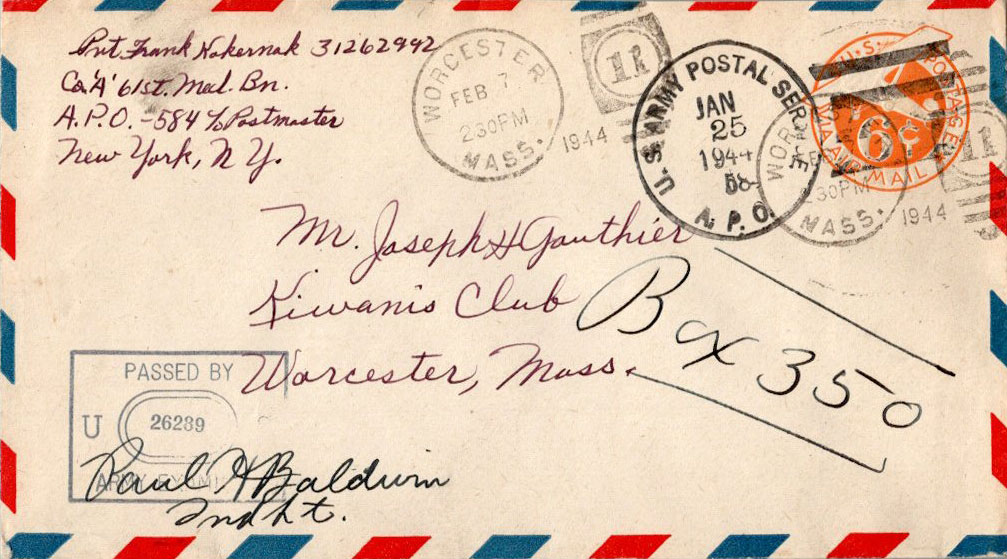 Pvt. Frank Nokernak 31262992
Co. "A" 61st. Med. Bn.
A.P.O. - 584 c/o Postmaster
New York, N Y.
WORCESTER
FEB 7
230PM
1944
MASS.
11
U.S. ARMY POSTAL SERVICE
JAN
25
1944
A. P. O.
U.S. POSTAGE
6¢
VIA AIR MAIL
WORCE
30PM
MASS.
1944
11
Mr. Joseph H Gauthier
Kiwanis Club
Worcester, Mass.
Box 350
PASSED BY
U
26289
ARMY EXAMI
Paul H Baldwin
2nd Lt.